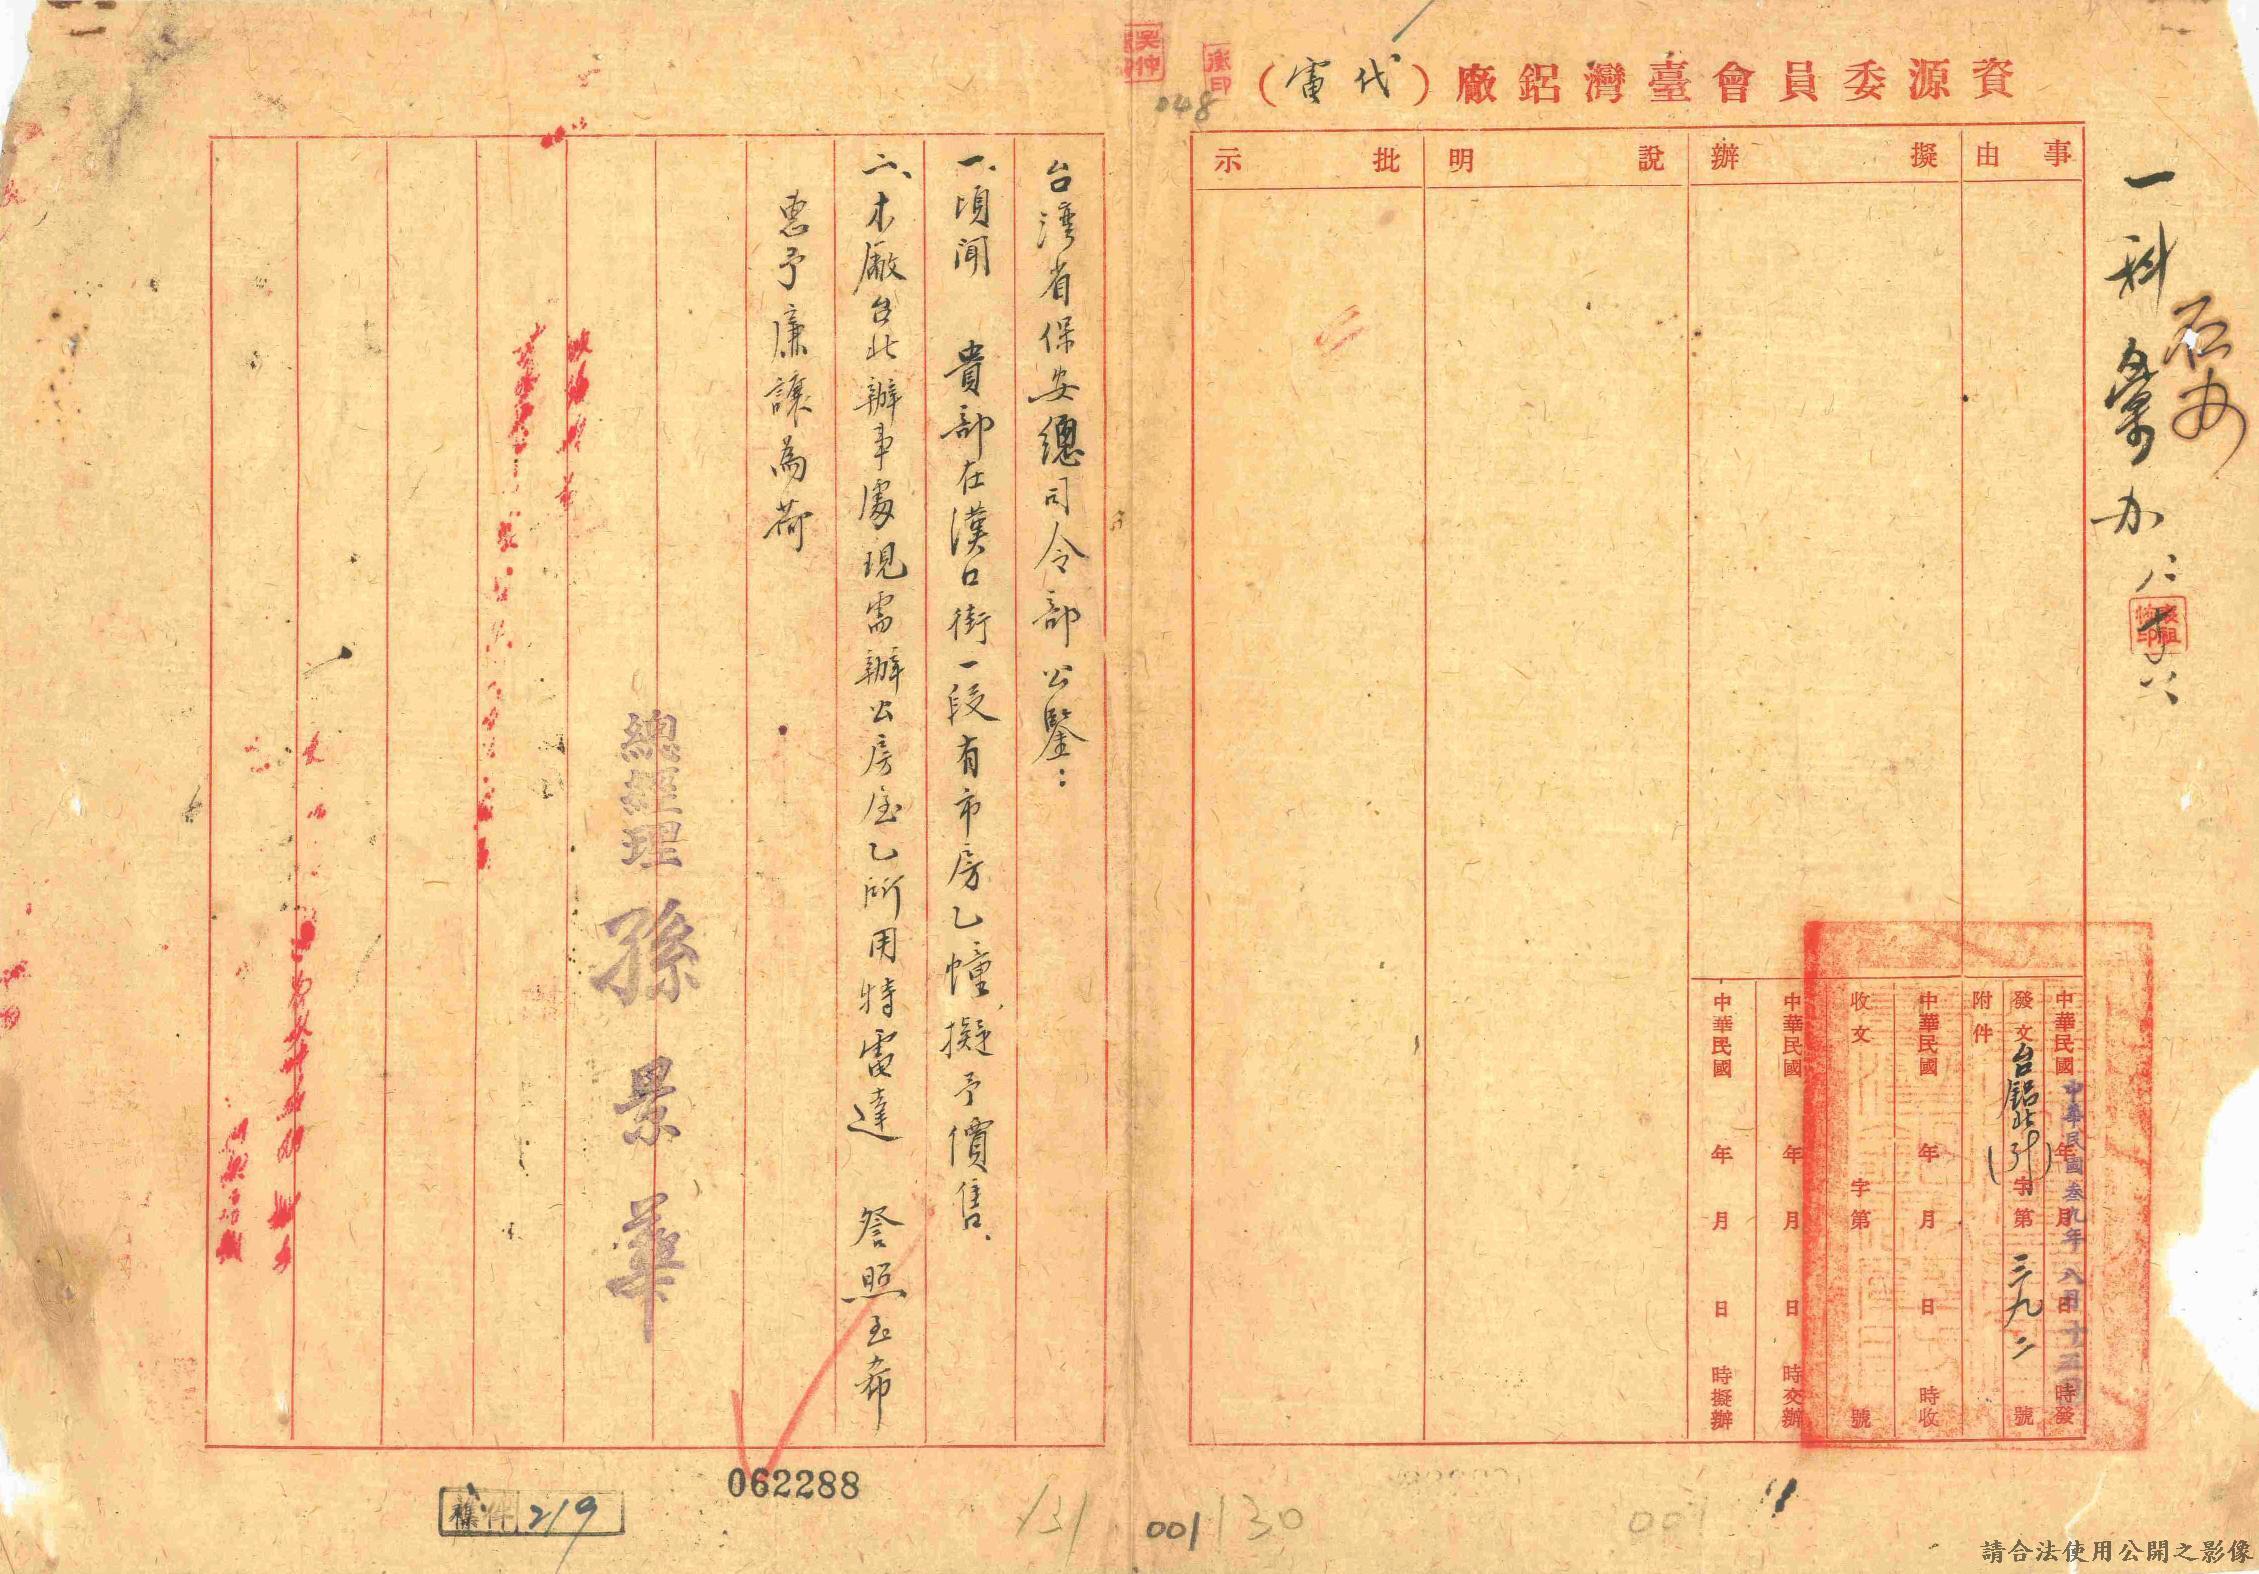 資源委員會臺灣鋁廠（代電）
一科彙办
事由
擬辦
說明
批示
中華民國 年 月 日 時發
中華民國叁九年八月十五日
發文 台鋁北(39)字第三九二號
附件
中華民國 年 月 日 時收
收文 字第 號
中華民國 年 月 日 時交辦
中華民國 年 月 日 時擬辦
048
台湾省保安總司令部公鑒：
一、頃聞 貴部在漢口街一段有市房乙幢，擬予價售、
二、本廠台北辦事處現需辦公房屋乙所用特電達 詧照至希
惠予廉讓為荷
總經理 孫景華
062288
219
131
001
130
001
請合法使用公開之影像